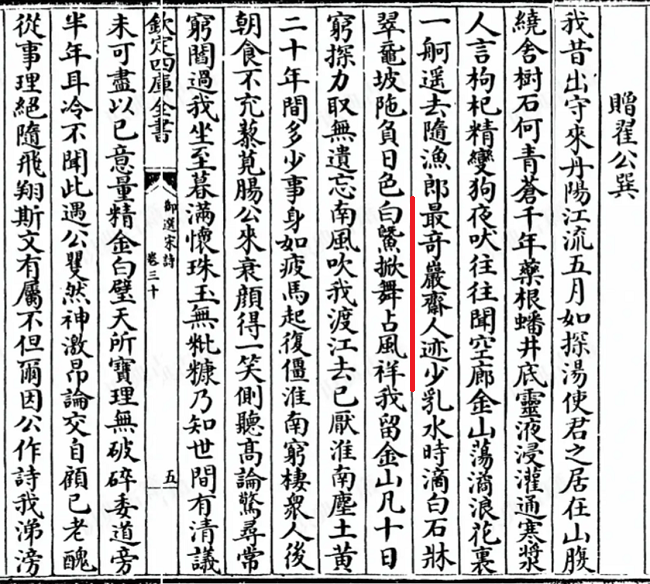 贈翟公巽
我昔出守來丹陽江流五月如探湯使君之居在山腹
繞舍樹石何青蒼千年藥根蟠井底靈液浸灌通寒漿
人言枸杞精變狗夜吠往往聞空廊金山蕩潏浪花裏
一舸遥去隨漁郎最竒巖齋人迹少乳水時滴白石牀
翠黿坡陁負日色白鱉掀舞占風祥我留金山凡十日
窮探力取無遺忘南風吹我渡江去已厭淮南塵土黄
二十年間多少事身如疲馬起復僵淮南窮棲衆人後
朝食不充藜莧腸公來衰顔得一笑側聽髙論驚尋常
窮閻過我坐至暮滿懷珠玉無粃糠乃知世間有清議
欽定四庫全書
御選宋詩
卷三十
五
未可盡以已意量精金白璧天所寶理無破碎委道旁
半年耳冷不聞此遇公矍然神激昂論交自顧已老醜
從事理絶隨飛翔斯文有屬不但爾因公作詩我涕滂